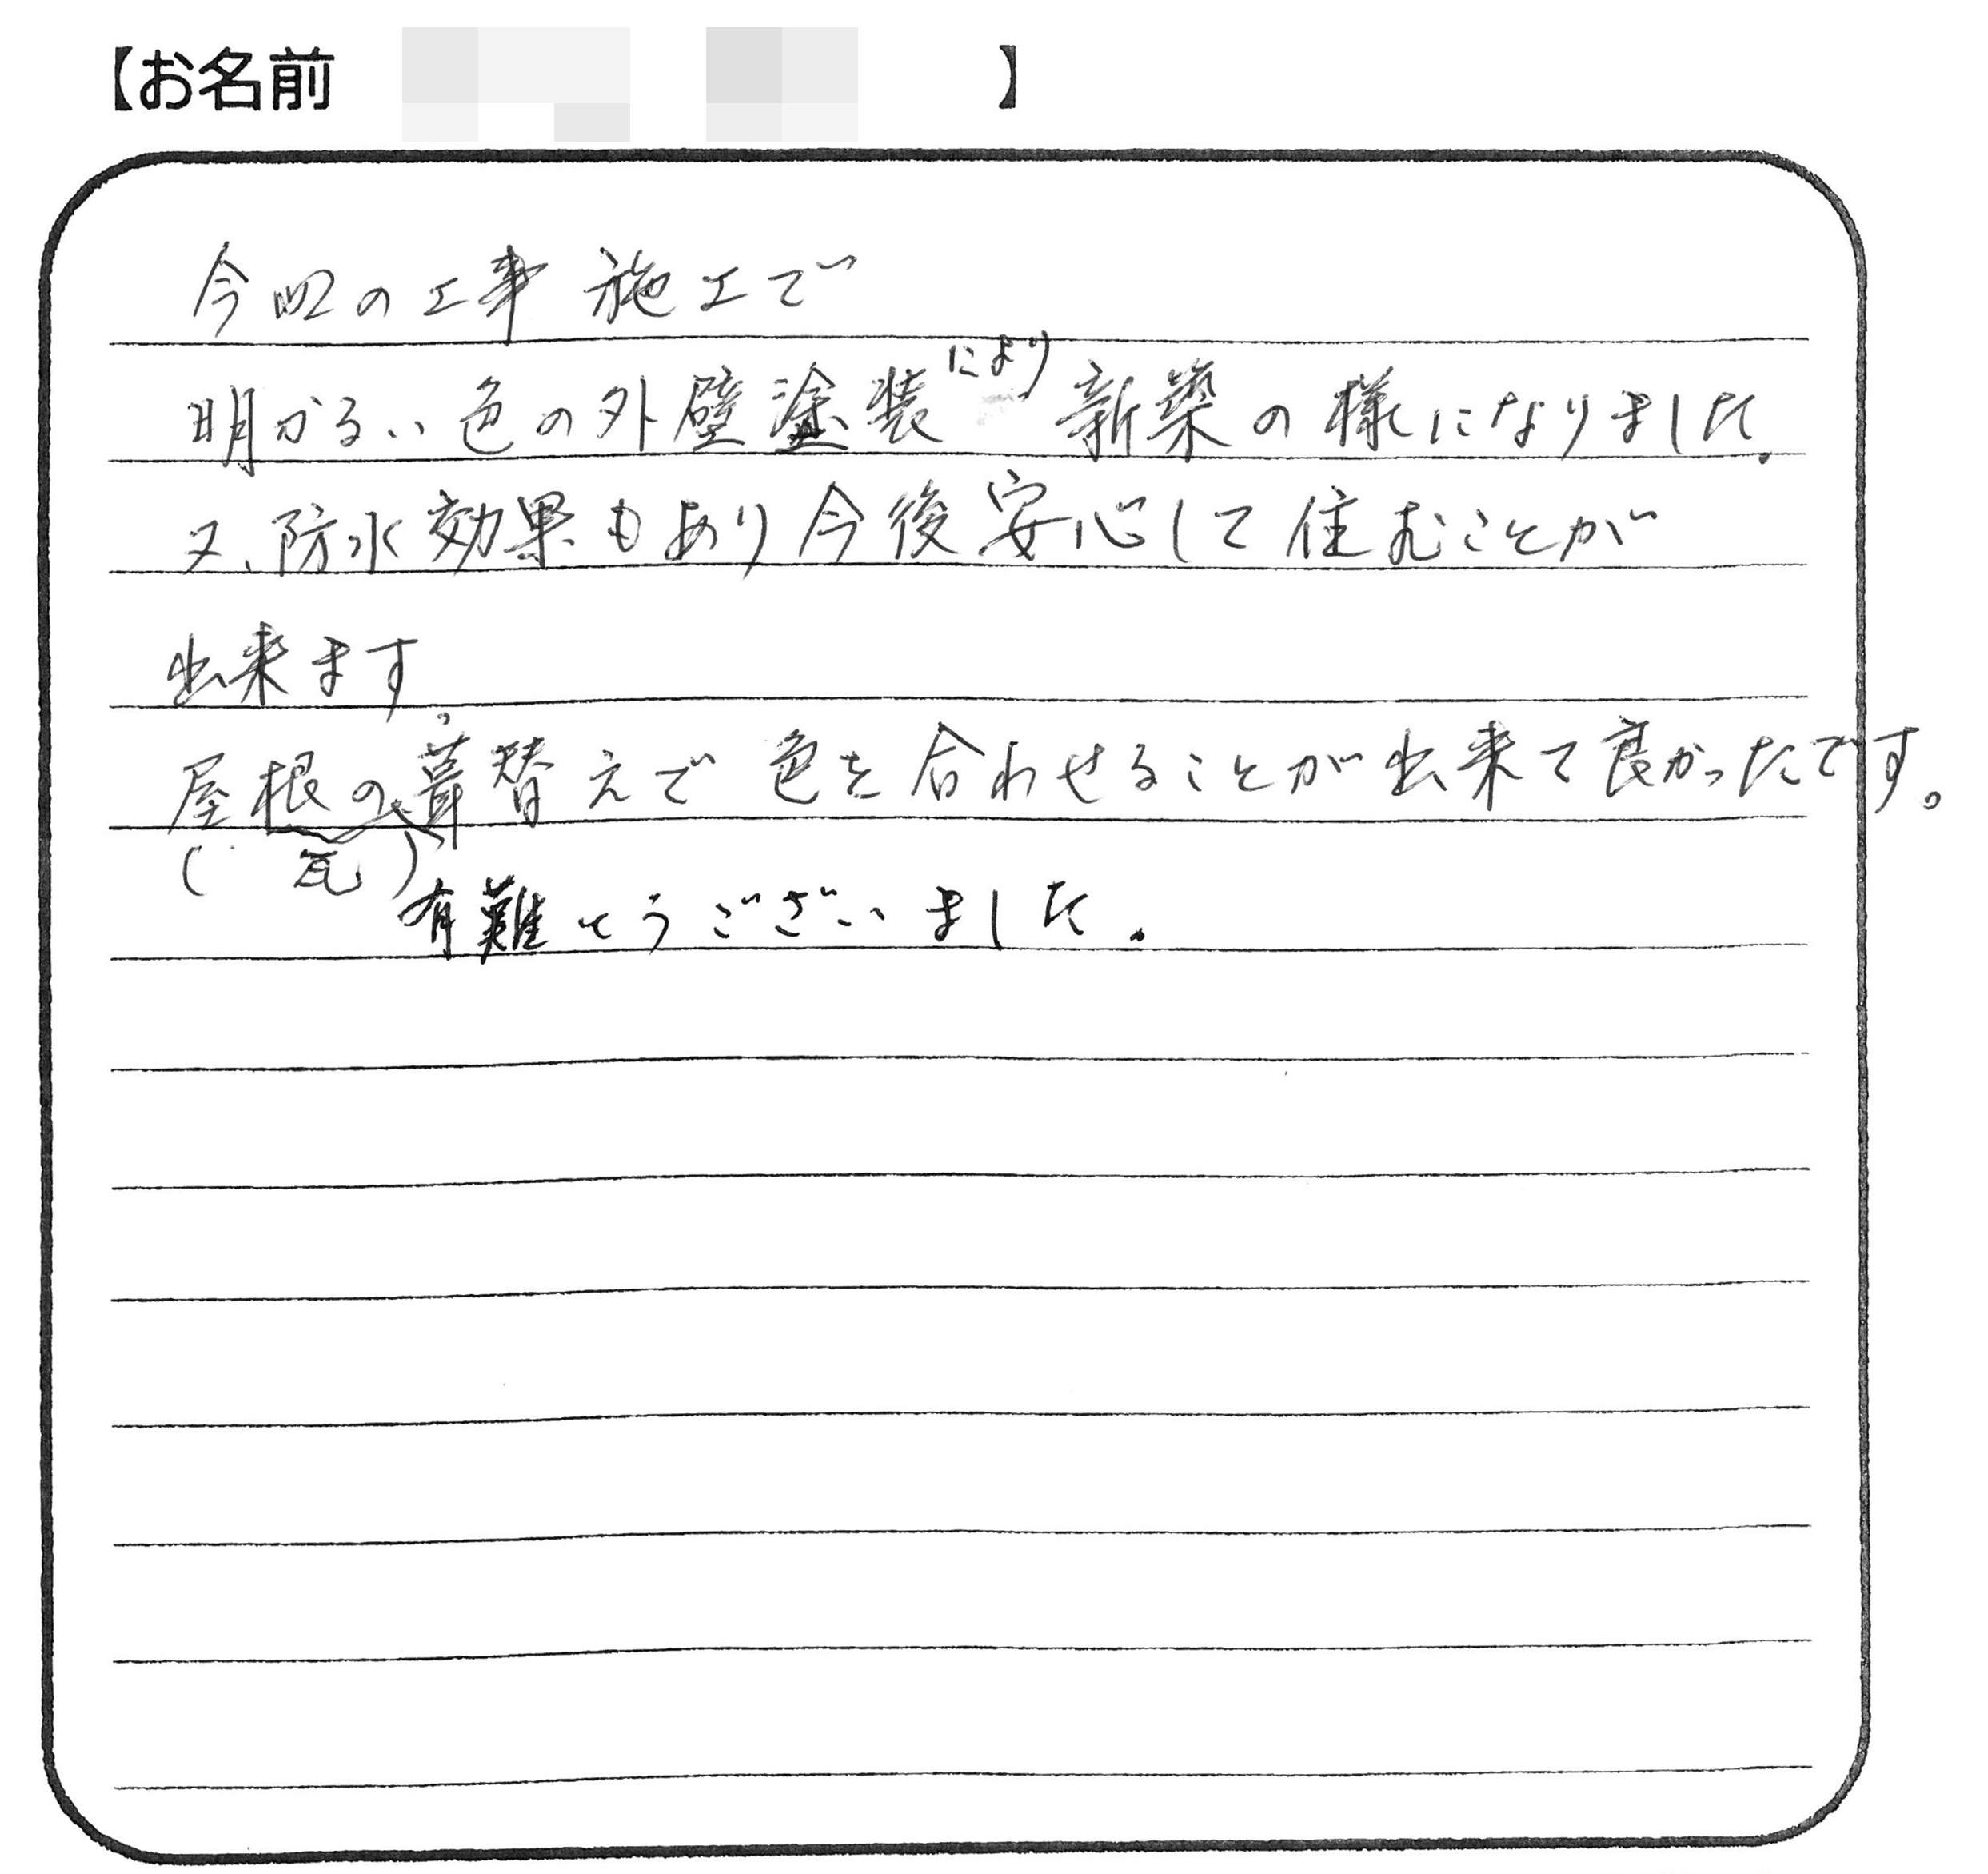 【お名前 】
今回の工事 施工で
明かるい色の外壁塗装により新築の様になりました.
又、防水効果もあり今後安心して住むことが
出来ます。
屋根の葺替えで色を合わせることが出来て良かったです。
(瓦)
有難とうございました.